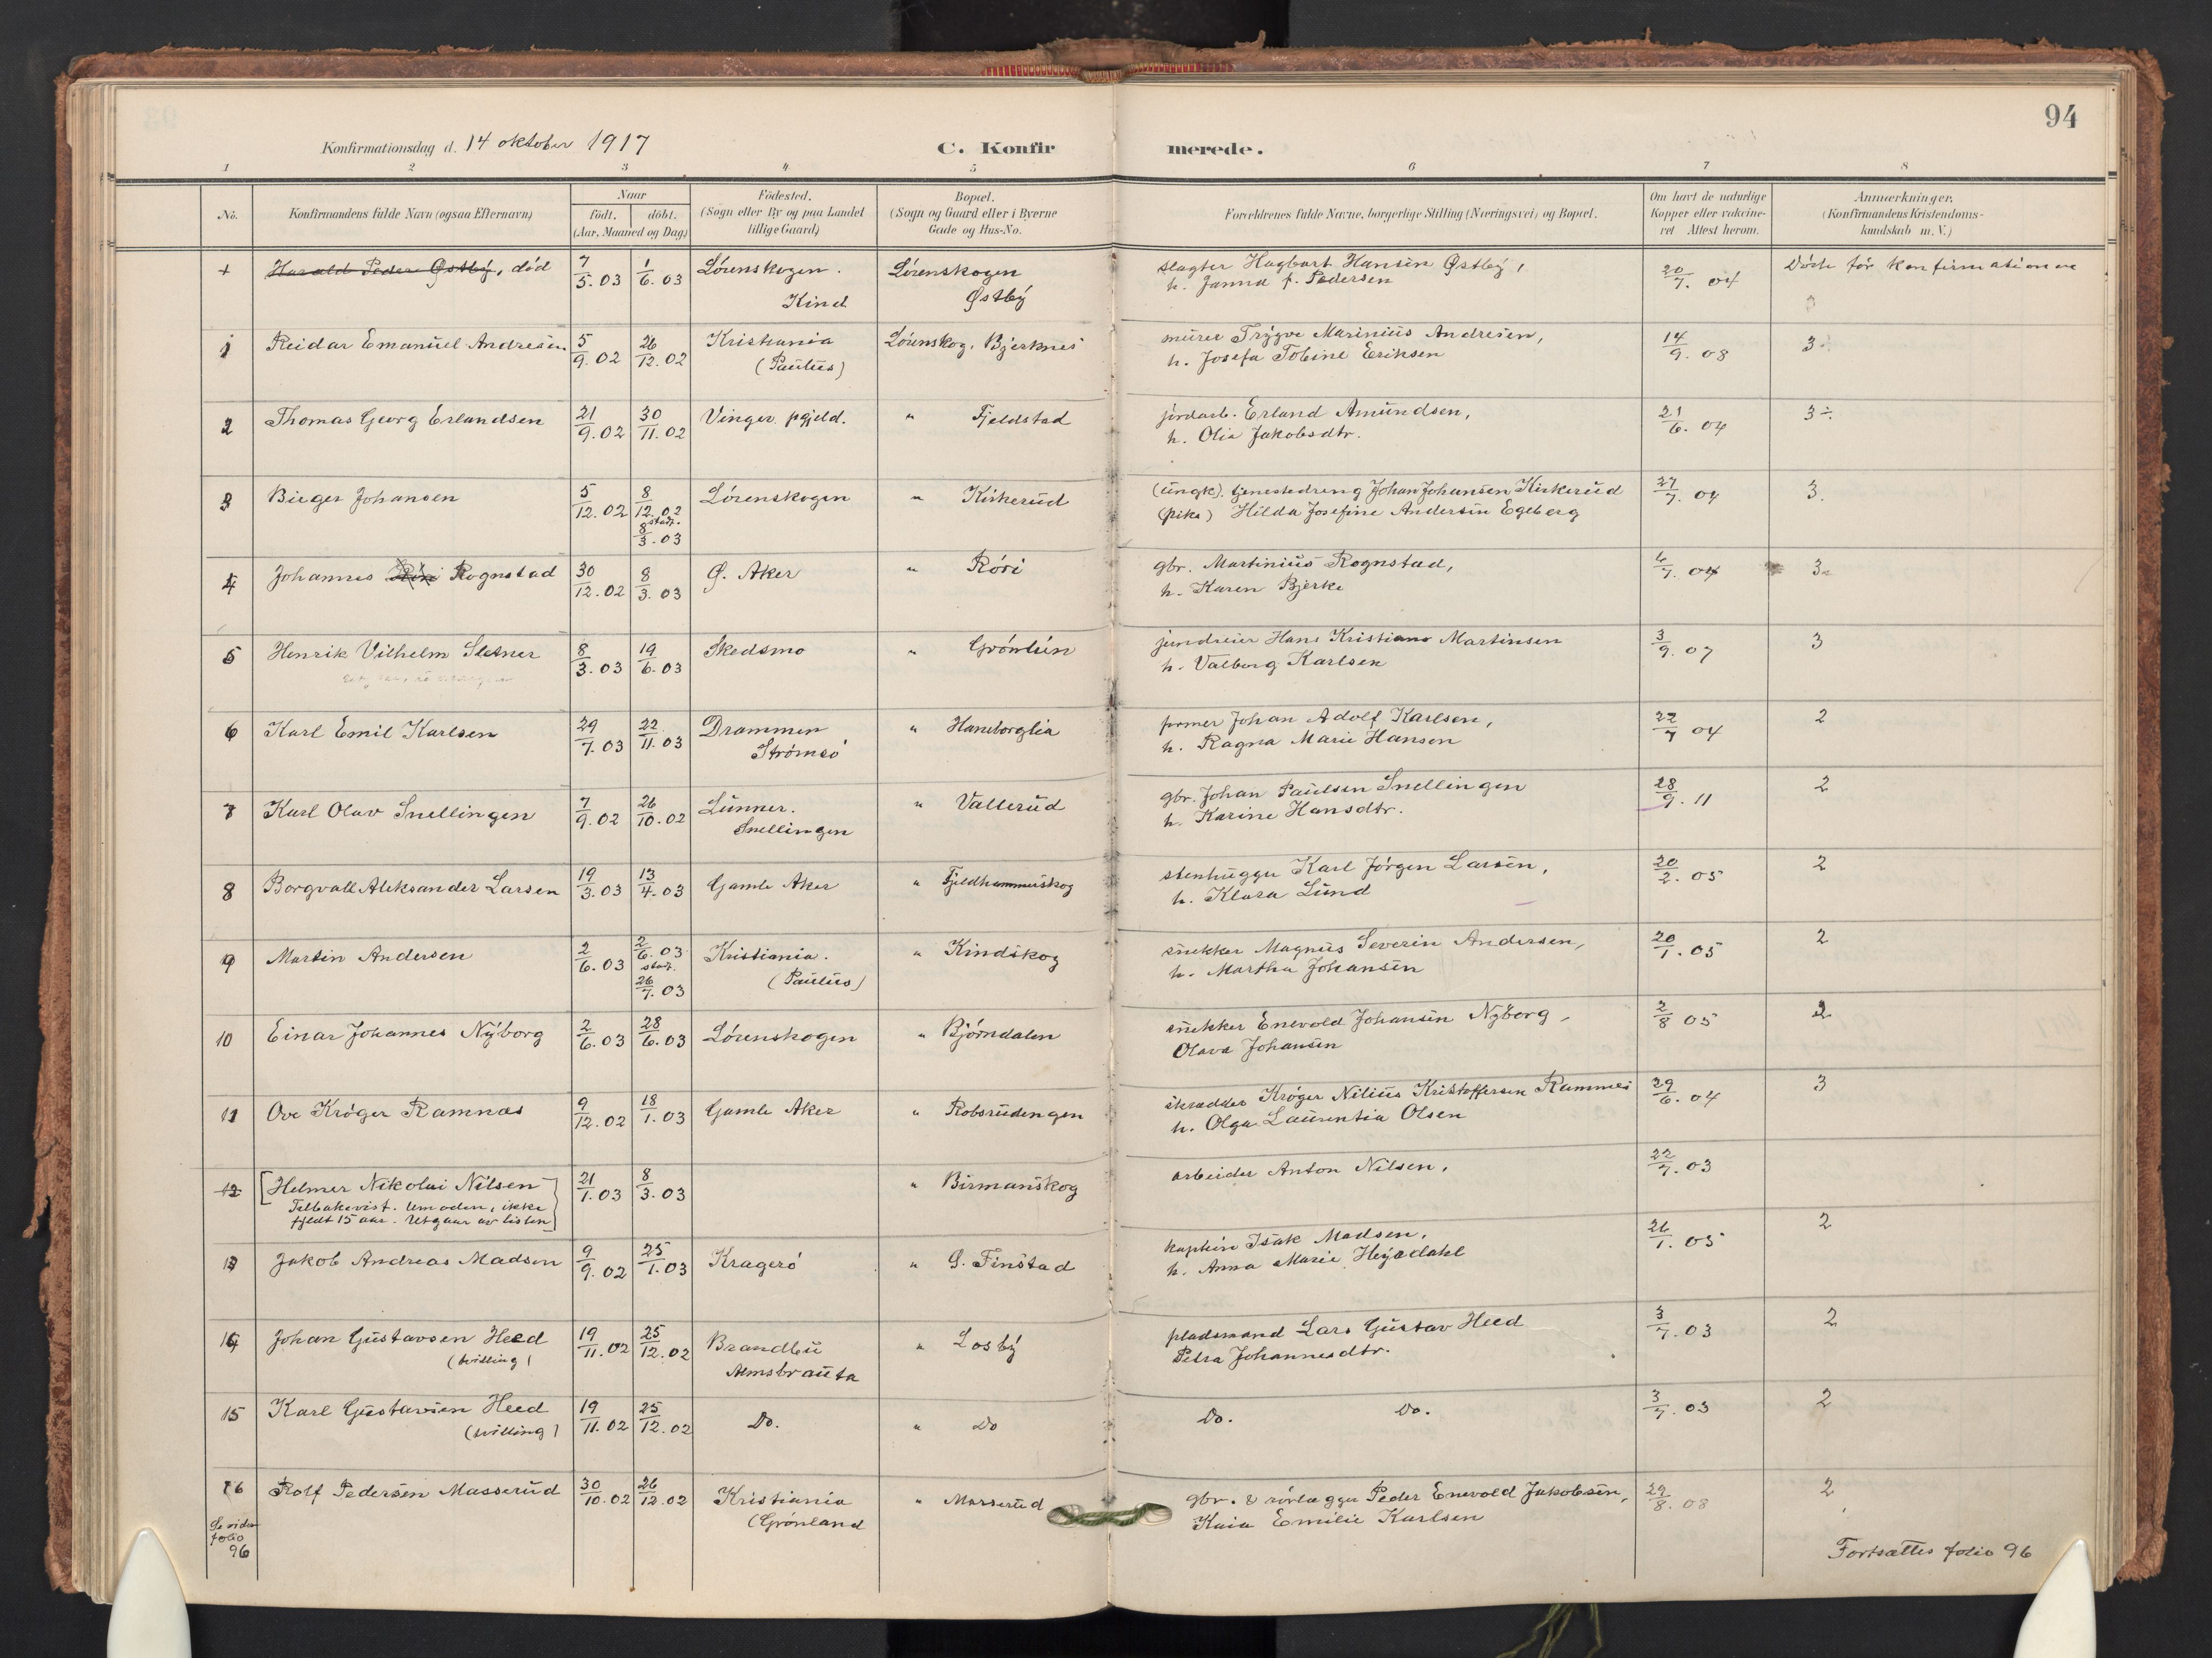 94
Konfirmationsdag d. 14 oktober 1917
C. Konfirmerede.
1 2 3 4 5 6 7 8
No. Konfirmandens fulde Navn (ogsaa Efternavn) Naar födt. döbt. (Aar, Maaned og Dag) Födested. (Sogn eller By og paa Landet tillige Gaard) Bopæl. (Sogn og Gaard eller i Byerne Gade og Hus-No. Forældrenes fulde Navne, borgerlige Stilling (Næringsvei) og Bopæl. Om havt de naturlige Kopper eller vakcineret Attest herom. Anmærkninger. (Konfirmandens Kristendomskundskab m. V.)
+ Harald Peder Østbý, död 7/5.03 1/6.03 Lörenskogen. Lörenskogen slagter Hagbart Hansen Østbý, 20/7.04 Döde för konfirmationen
Kind Østbý h. Janna f. Pedersen
1 Reidar Emanuel Andresen 5/9.02 26/12.02 Kristiania Lörenskog. Bjerknes murer Trygve Marinius Andresen, 14/9.08 3÷
(Paulus) h. Josefa Tobine Eriksen
2 Thomas Georg Erlandsen 21/9.02 30/11.02 Vinger pgjeld. " Fjeldstad jordarb. Erland Amundsen, 21/6.04 3÷
h. Olia Jakobsdtr.
3 Birger Johansen 5/12.02 8/12.02 Lörenskogen " Kirkerud (ungk). tjenestedreng Johan Johansen Kirkerud 27/7.04 3.
stadf. 8/3.03 (pike) Hilda Josefine Andersen Egeberg
4 Johannes Rognstad 30/12.02 8/3.03 Ø. Aker " Röri gbr. Martinius Rognstad, 4/7.04 3
h. Karen Bjerke
5 Henrik Vilhelm Sletner 8/3.03 19/6.03 Skedsmo " Grönlün Hans Kristians Martinsen 3/9.07 3
h. Valborg Karlsen
6 Karl Emil Karlsen 29/7.03 22/11.03 Drammen " Haneborglia Johan Adolf Karlsen, 22/7 04 2
Strömsö h. Ragna Marie Hansen
7 Karl Olav Snellingen 7/9.02 26/10.02 Lunner. " Vallerud gbr. Johan Paulsen Snellingen 28/9.11 2
Snellingen h. Karine Hansdtr.
8 Borgvall Aleksander Larsen 19/3.03 13/4.03 Gamle Aker " Fjeldhammerskog stenhugger Karl Jörgen Larsen, 20/2.05 2
h. Klara Lund
9 Martin Andersen 2/6.03 2/6.03 Kristiania. " Kindskog snekker Magnus Severin Andersen, 20/1.05 2
stadf. 26/7.03 (Paulus) h. Martha Johansen
10 Einar Johannes Nýborg 2/6.03 28/6.03 Lörenskogen " Björndalen snekker Enevold Johansen Nýborg, 2/8 05 2
Olava Johansen
11 Ove Kröger Ramnæs 9/12.02 18/1.03 Gamle Aker " Robsrudengen skrædder Kröger Nilius Kristoffersen Ramnæs 29/6.04 3
h. Olga Laurentia Olsen
12 [Helmer Nikolai Nilsen 21/1.03 8/3.03 " Birmanskog arbeider Anton Nilsen, 22/7.03
Tilbakevist. Umoden, ikke
fyldt 15 aar. Utgaar av listen]
13 Jakob Andreas Madsen 9/9.02 25/1.03 Kragerö " S. Finstad kaptein Isak Madsen, 26/1.05 2
h. Anna Marie Heyerdahl
14 Johan Gustavsen Heed 19/11.02 25/12.02 Brandbu " Losbý pladsmand Lars Gustav Heed 3/7.03 2
(tvilling) Almsbrauta Petra Johannesdtr.
15 Karl Gustavsen Heed 19/11.02 25/12.02 Do. " Do Do. Do. 3/7.03 2
(tvilling)
16 Rolf Pedersen Masserud 30/10.02 26/12.02 Kristiania " Masserud gbr. & rörlægger Peder Enevold Jakobsen, 29/8.08 2
(Grönland Kaia Emilie Karlsen
Se videre
folio
96
Fortsættes folio 96